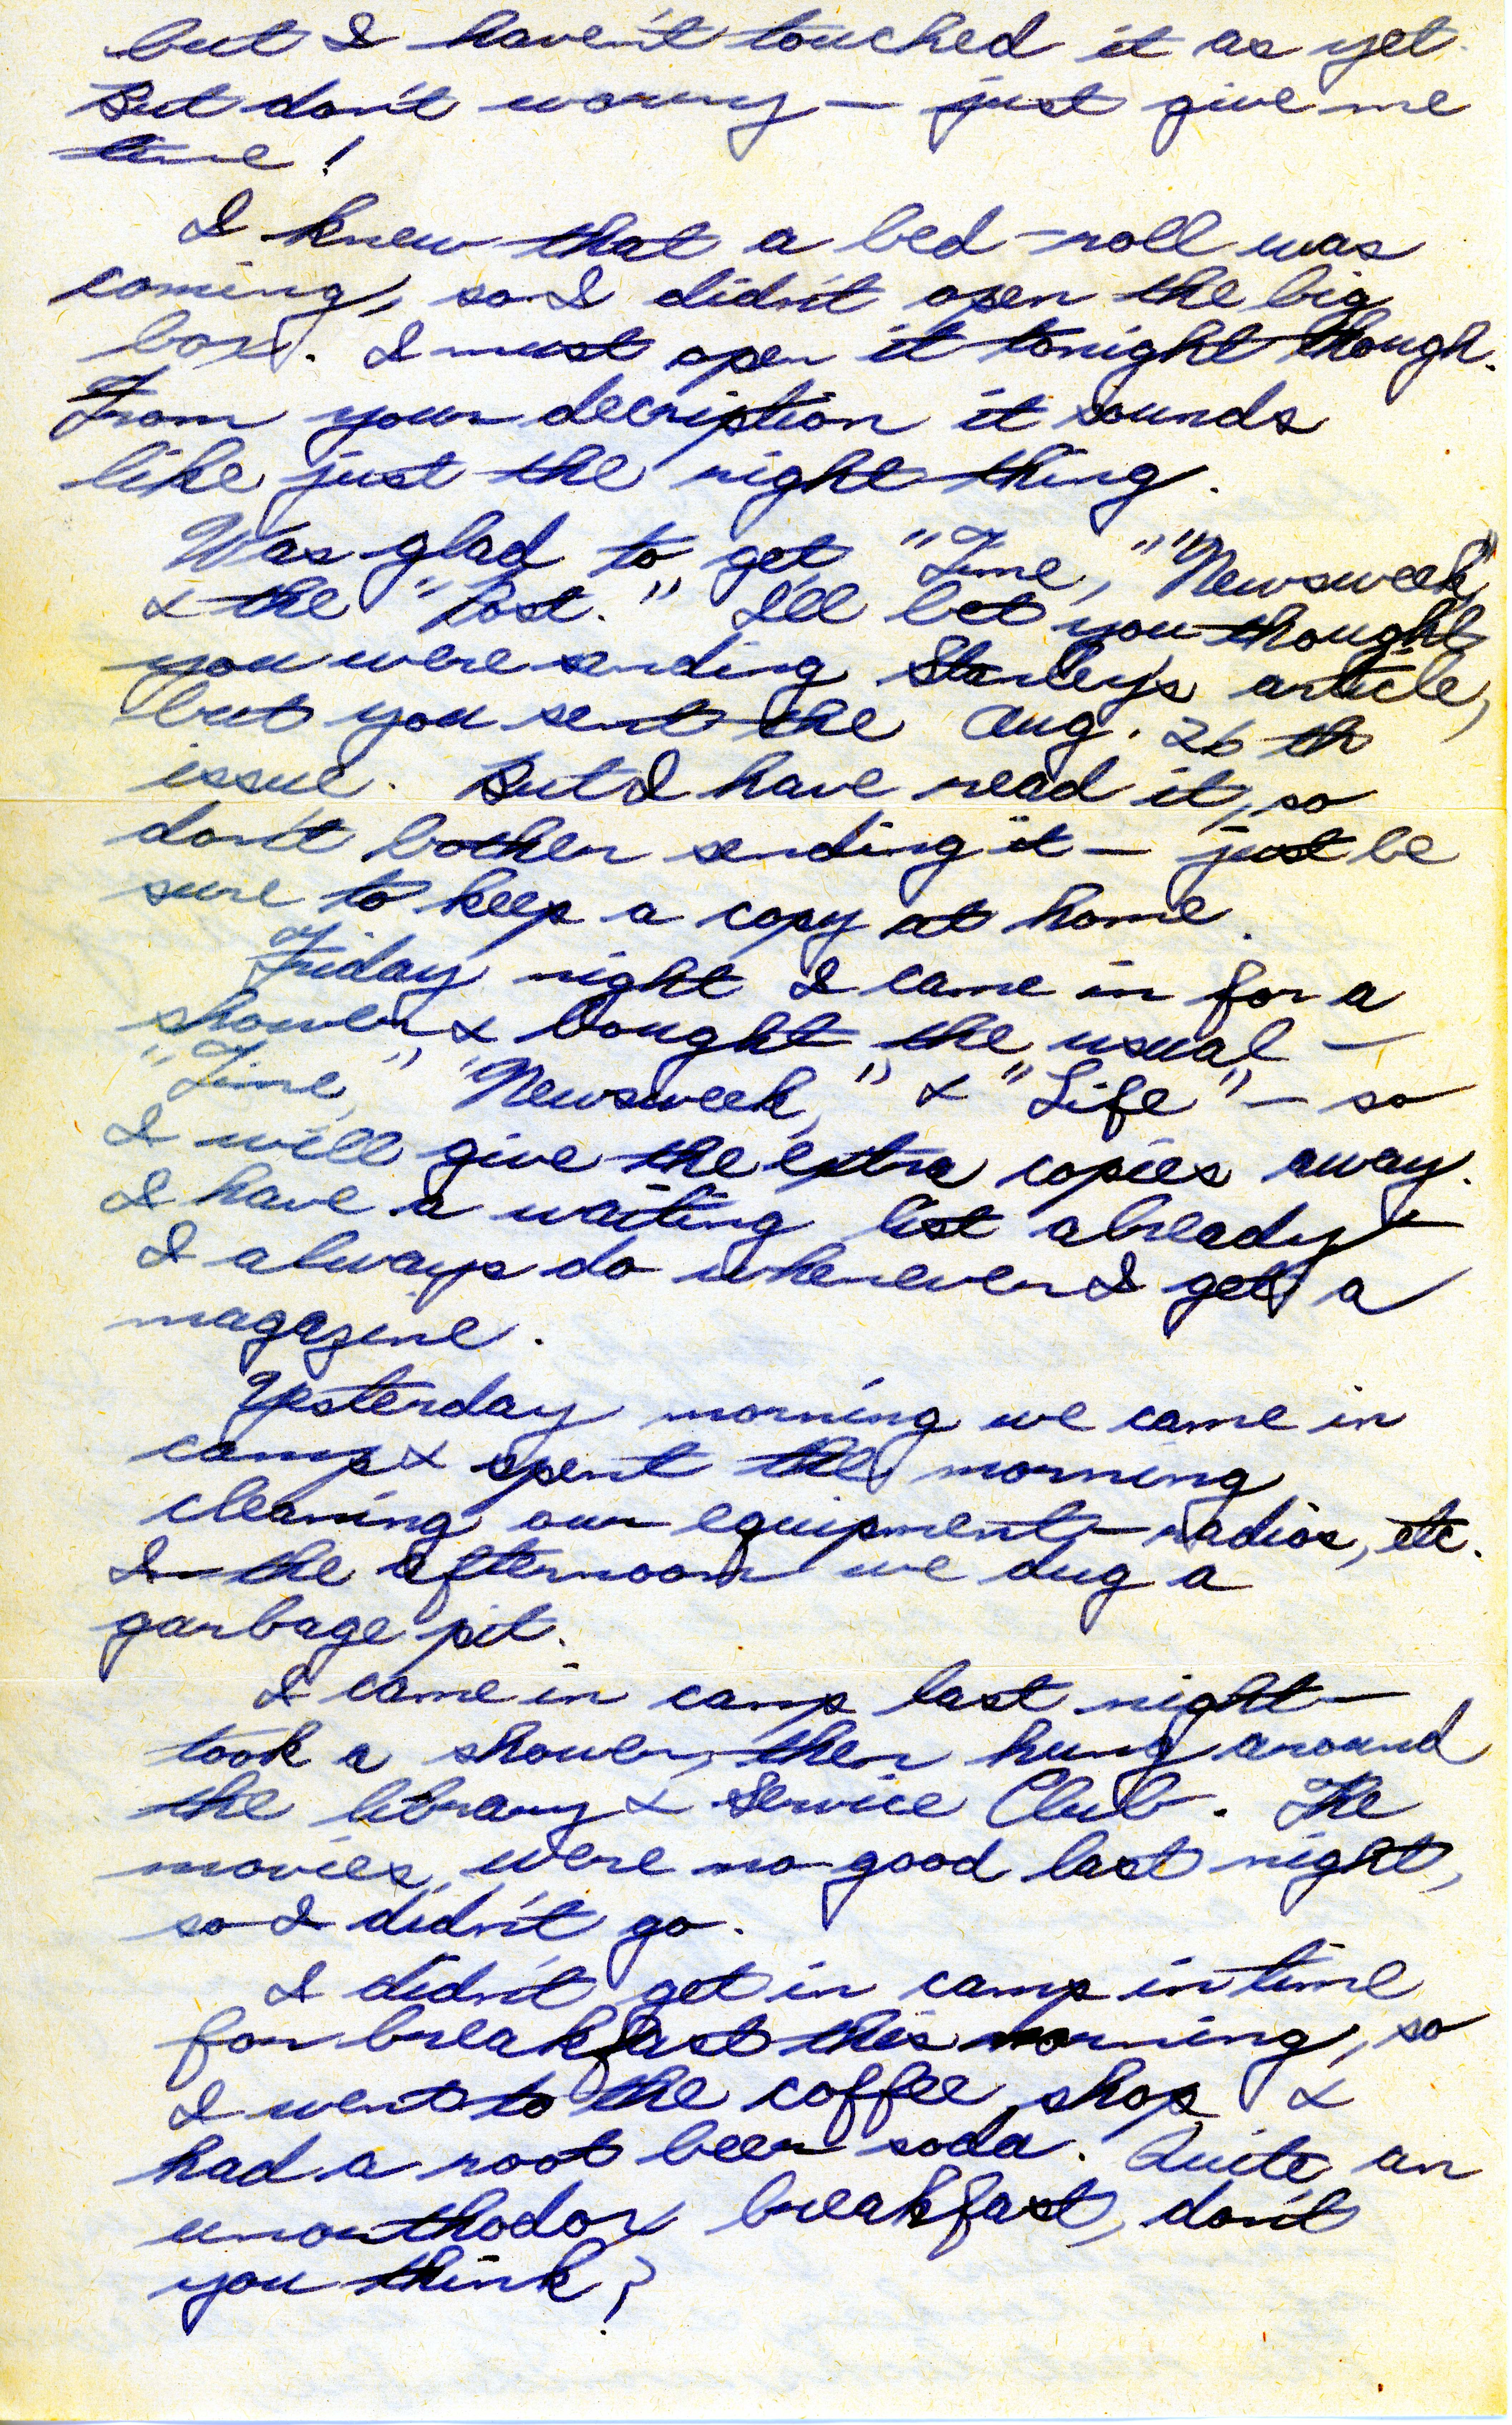 but I haven't touched it as yet.
But don't worry — just give me
time!
I knew that a bed-roll was
coming, so I didn't open the big
box. I must open it tonight though.
From your decription it sounds
like just the right thing.
Was glad to get "Time," "Newsweek,"
& the "Post." I'll bet you thought
you were sending Stanley's article,
but you sent the Aug. 26 th
issue. But I have read it, so
don't bother sending it — just be
sure to keep a copy at home.
Friday night I came in for a
shower & bought the usual —
"Time," "Newsweek," & "Life" — so
I will give the extra copies away.
I have a waiting list already —
I always do whenever I get a
magazine.
Yesterday morning we came in
camp & spent the morning
cleaning our equipment — radios, etc.
In the afternoon we dug a
garbage pit.
I came in camp last night —
took a shower, then hung around
the library & Service Club. The
movies were no good last night,
so I didn't go.
I didn't get in camp in time
for breakfast this morning, so
I went to the coffee shop &
had a root beer soda. Quite an
unorthodox breakfast, don't
you think?